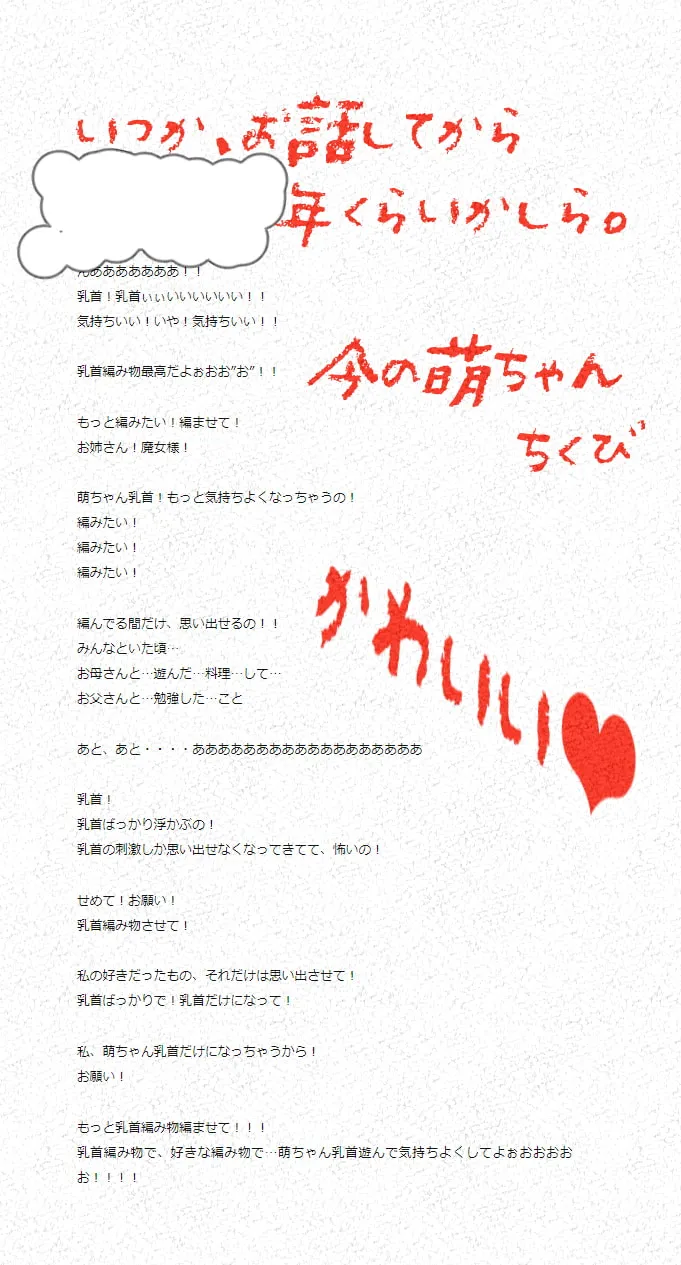 いつか、お話してから
年くらいかしら。
んああああああ！！
乳首！乳首ぃぃいいいいいい！！
気持ちいい！いや！気持ちいい！！
今の萌ちゃん
乳首編み物最高だよぉおお”お”！！
ちくび
もっと編みたい！編ませて！
お姉さん！魔女様！
萌ちゃん乳首！もっと気持ちよくなっちゃうの！
編みたい！
編みたい！
編みたい！
かわいい♥
編んでる間だけ、思い出せるの！！
みんなといた頃…
お母さんと…遊んだ…料理…して…
お父さんと…勉強した…こと
あと、あと・・・・ああああああああああああああああああ
乳首！
乳首ばっかり浮かぶの！
乳首の刺激しか思い出せなくなってきてて、怖いの！
せめて！お願い！
乳首編み物させて！
私の好きだったもの、それだけは思い出させて！
乳首ばっかりで！乳首だけになって！
私、萌ちゃん乳首だけになっちゃうから！
お願い！
もっと乳首編み物編ませて！！！
乳首編み物で、好きな編み物で…萌ちゃん乳首遊んで気持ちよくしてよぉおおおお
お！！！！